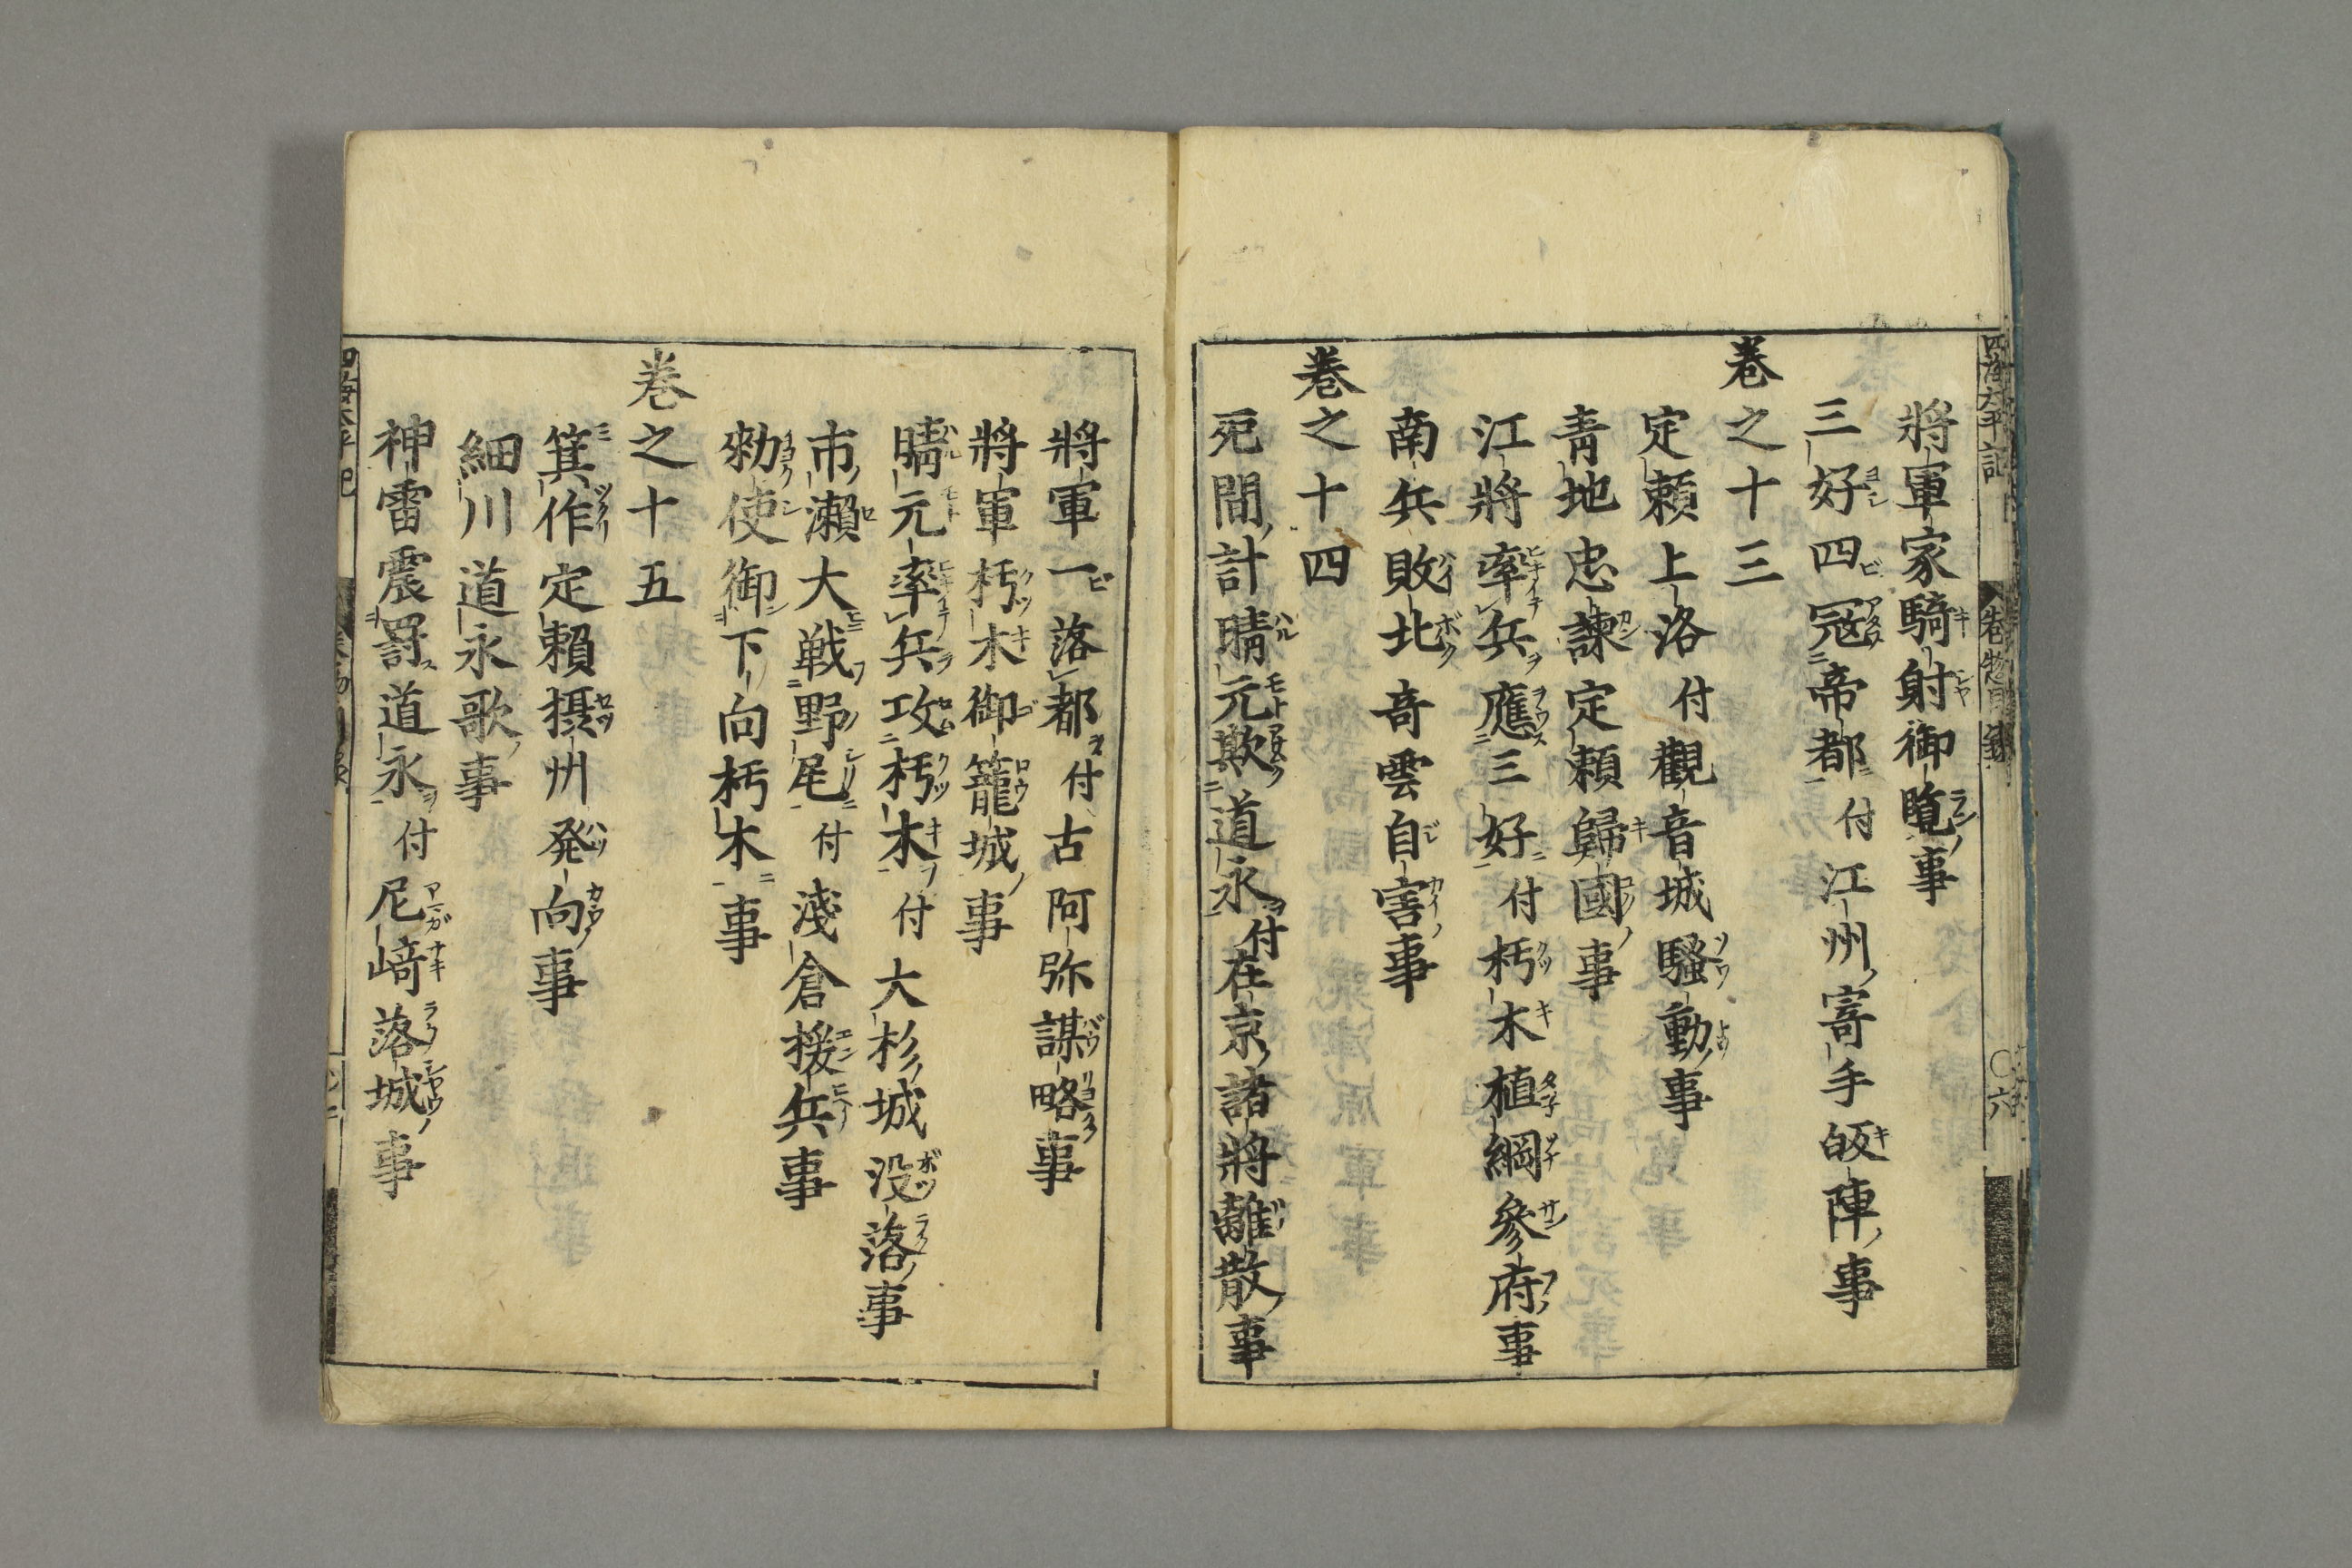 將軍家騎射御覧事
三好四冦帝都付江州寄手皈陣事
巻之十三
定頼上洛付觀音城騒動事
青地忠諫定頼歸國事
江將率兵應三好付朽木植綱參府事
南兵敗北竒雲自害事
巻之十四
死間計晴元欺道永付在京諸將離散事
將軍一落都付古阿弥謀略事
將軍朽木御籠城事
晴元率兵攻朽木付大杉城没落事
市瀬大戦野尾付淺倉援兵事
勅使御下向朽木事
巻之十五
箕作定賴摂州発向事
細川道永歌事
神雷震罸道永付尼﨑落城事